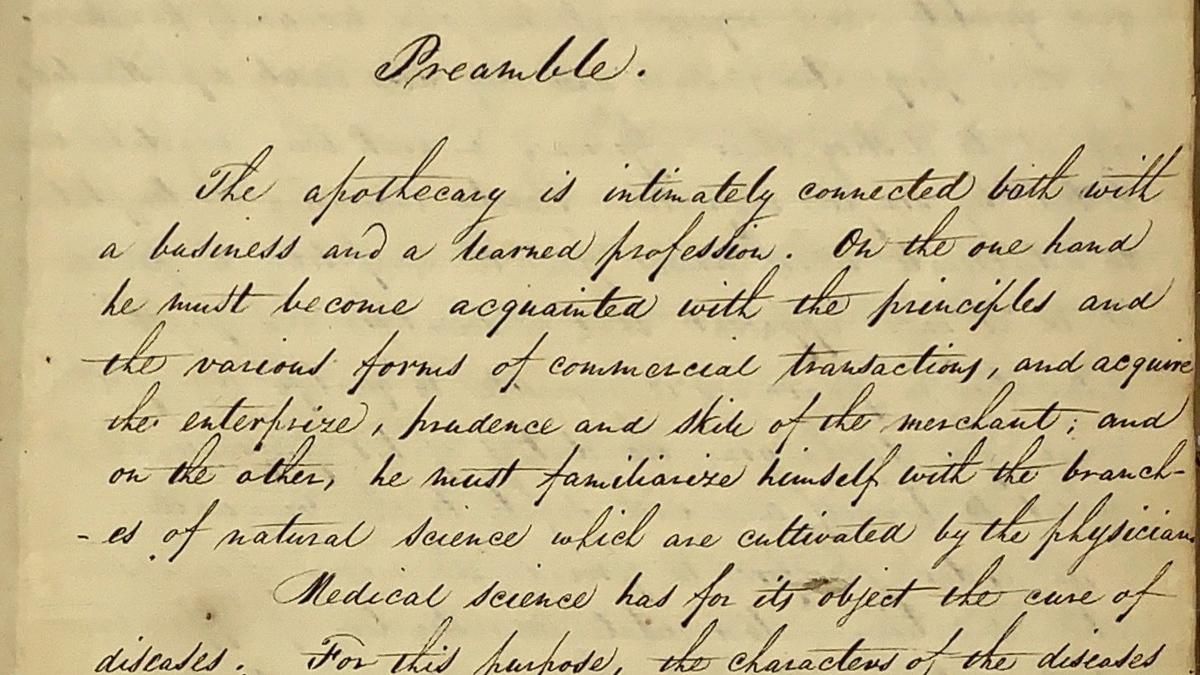 Preamble.
The apothecary is intimately connected both with
a business and a learned profession. On the one hand
he must become acquainted with the principles and
the various forms of commercial transactions, and acquire
the enterprize, prudence and skill of the merchant; and
on the other, he must familiarize himself with the branch-
-es of natural science which are cultivated by the physician.
Medical science has for its object the cure of
diseases. For this purpose, the characters of the diseases